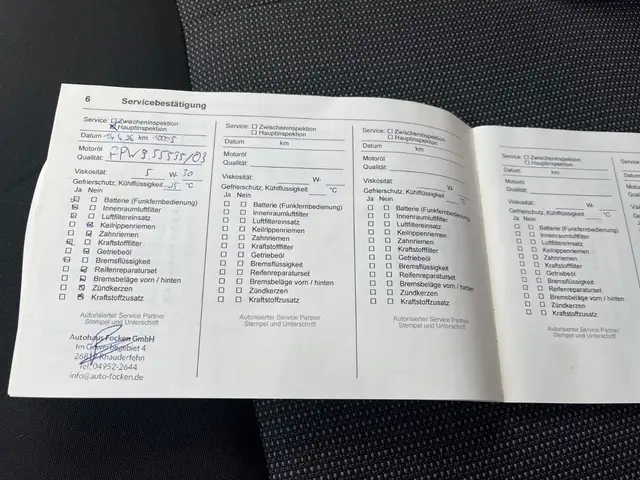 6 Servicebestätigung
Service: ☐ Zwischeninspektion
☒ Hauptinspektion
Datum km
Motoröl
Qualität:
Viskosität: 5 W- 30
Gefrierschutz, Kühlflüssigkeit °C
Ja Nein
Batterie (Funkfernbedienung)
Innenraumluftfilter
Luftfiltereinsatz
Keilrippenriemen
Zahnriemen
Kraftstofffilter
Getriebeöl
Bremsflüssigkeit
Reifenreparaturset
Bremsbeläge vorn / hinten
Zündkerzen
Kraftstoffzusatz
Autorisierter Service Partner
Stempel und Unterschrift
Autohaus Focken GmbH
Im Gewerbegebiet 4
Rhauderfehn
Tel. 04952-2644
info@auto-focken.de
Service: ☐ Zwischeninspektion
☐ Hauptinspektion
Datum km
Motoröl
Qualität:
Viskosität: W-
Gefrierschutz, Kühlflüssigkeit °C
Ja Nein
☐ ☐ Batterie (Funkfernbedienung)
☐ ☐ Innenraumluftfilter
☐ ☐ Luftfiltereinsatz
☐ ☐ Keilrippenriemen
☐ ☐ Zahnriemen
☐ ☐ Kraftstofffilter
☐ ☐ Getriebeöl
☐ ☐ Bremsflüssigkeit
☐ ☐ Reifenreparaturset
☐ ☐ Bremsbeläge vorn / hinten
☐ ☐ Zündkerzen
☐ ☐ Kraftstoffzusatz
Autorisierter Service Partner
Stempel und Unterschrift
Service: ☐ Zwischeninspektion
☐ Hauptinspektion
Datum km
Motoröl
Qualität:
Viskosität: W-
Gefrierschutz, Kühlflüssigkeit °C
Ja Nein
☐ ☐ Batterie (Funkfernbedienung)
☐ ☐ Innenraumluftfilter
☐ ☐ Luftfiltereinsatz
☐ ☐ Keilrippenriemen
☐ ☐ Zahnriemen
☐ ☐ Kraftstofffilter
☐ ☐ Getriebeöl
☐ ☐ Bremsflüssigkeit
☐ ☐ Reifenreparaturset
☐ ☐ Bremsbeläge vorn / hinten
☐ ☐ Zündkerzen
☐ ☐ Kraftstoffzusatz
Autorisierter Service Partner
Stempel und Unterschrift
Service: ☐ Zwischeninspektion
☐ Hauptinspektion
Datum km
Motoröl
Qualität:
Viskosität: W-
Gefrierschutz, Kühlflüssigkeit °C
Ja Nein
☐ ☐ Batterie (Funkfernbedienung)
☐ ☐ Innenraumluftfilter
☐ ☐ Luftfiltereinsatz
☐ ☐ Keilrippenriemen
☐ ☐ Zahnriemen
☐ ☐ Kraftstofffilter
☐ ☐ Getriebeöl
☐ ☐ Bremsflüssigkeit
☐ ☐ Reifenreparaturset
☐ ☐ Bremsbeläge vorn / hinten
☐ ☐ Zündkerzen
☐ ☐ Kraftstoffzusatz
Autorisierter Service Partner
Stempel und Unterschrift